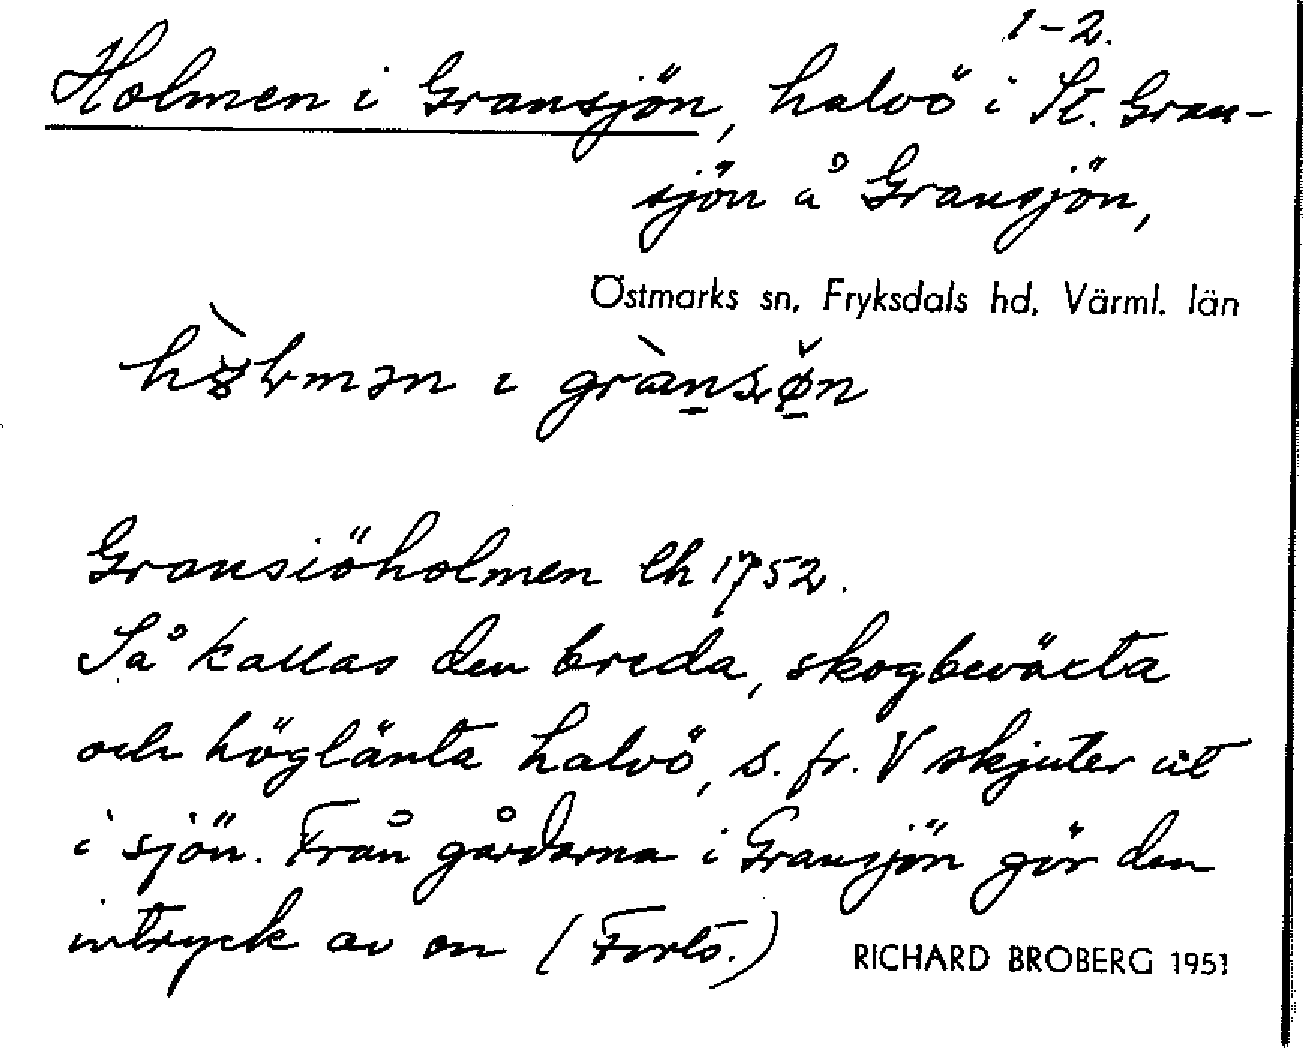 1-2.
Holmen i Gransjön, halvö i St. Gran-
sjön å Gransjön,
Östmarks sn. Fryksdals hd. Värml. län
i
Gransiöholmen lh 1752.
Så kallas den breda, skogbeväxta
och höglänta halvö, s. fr. V skjuter ut
i sjön. Från gårdarna i Gransjön gör den
intryck av en (Forts.)
RICHARD BROBERG 1951